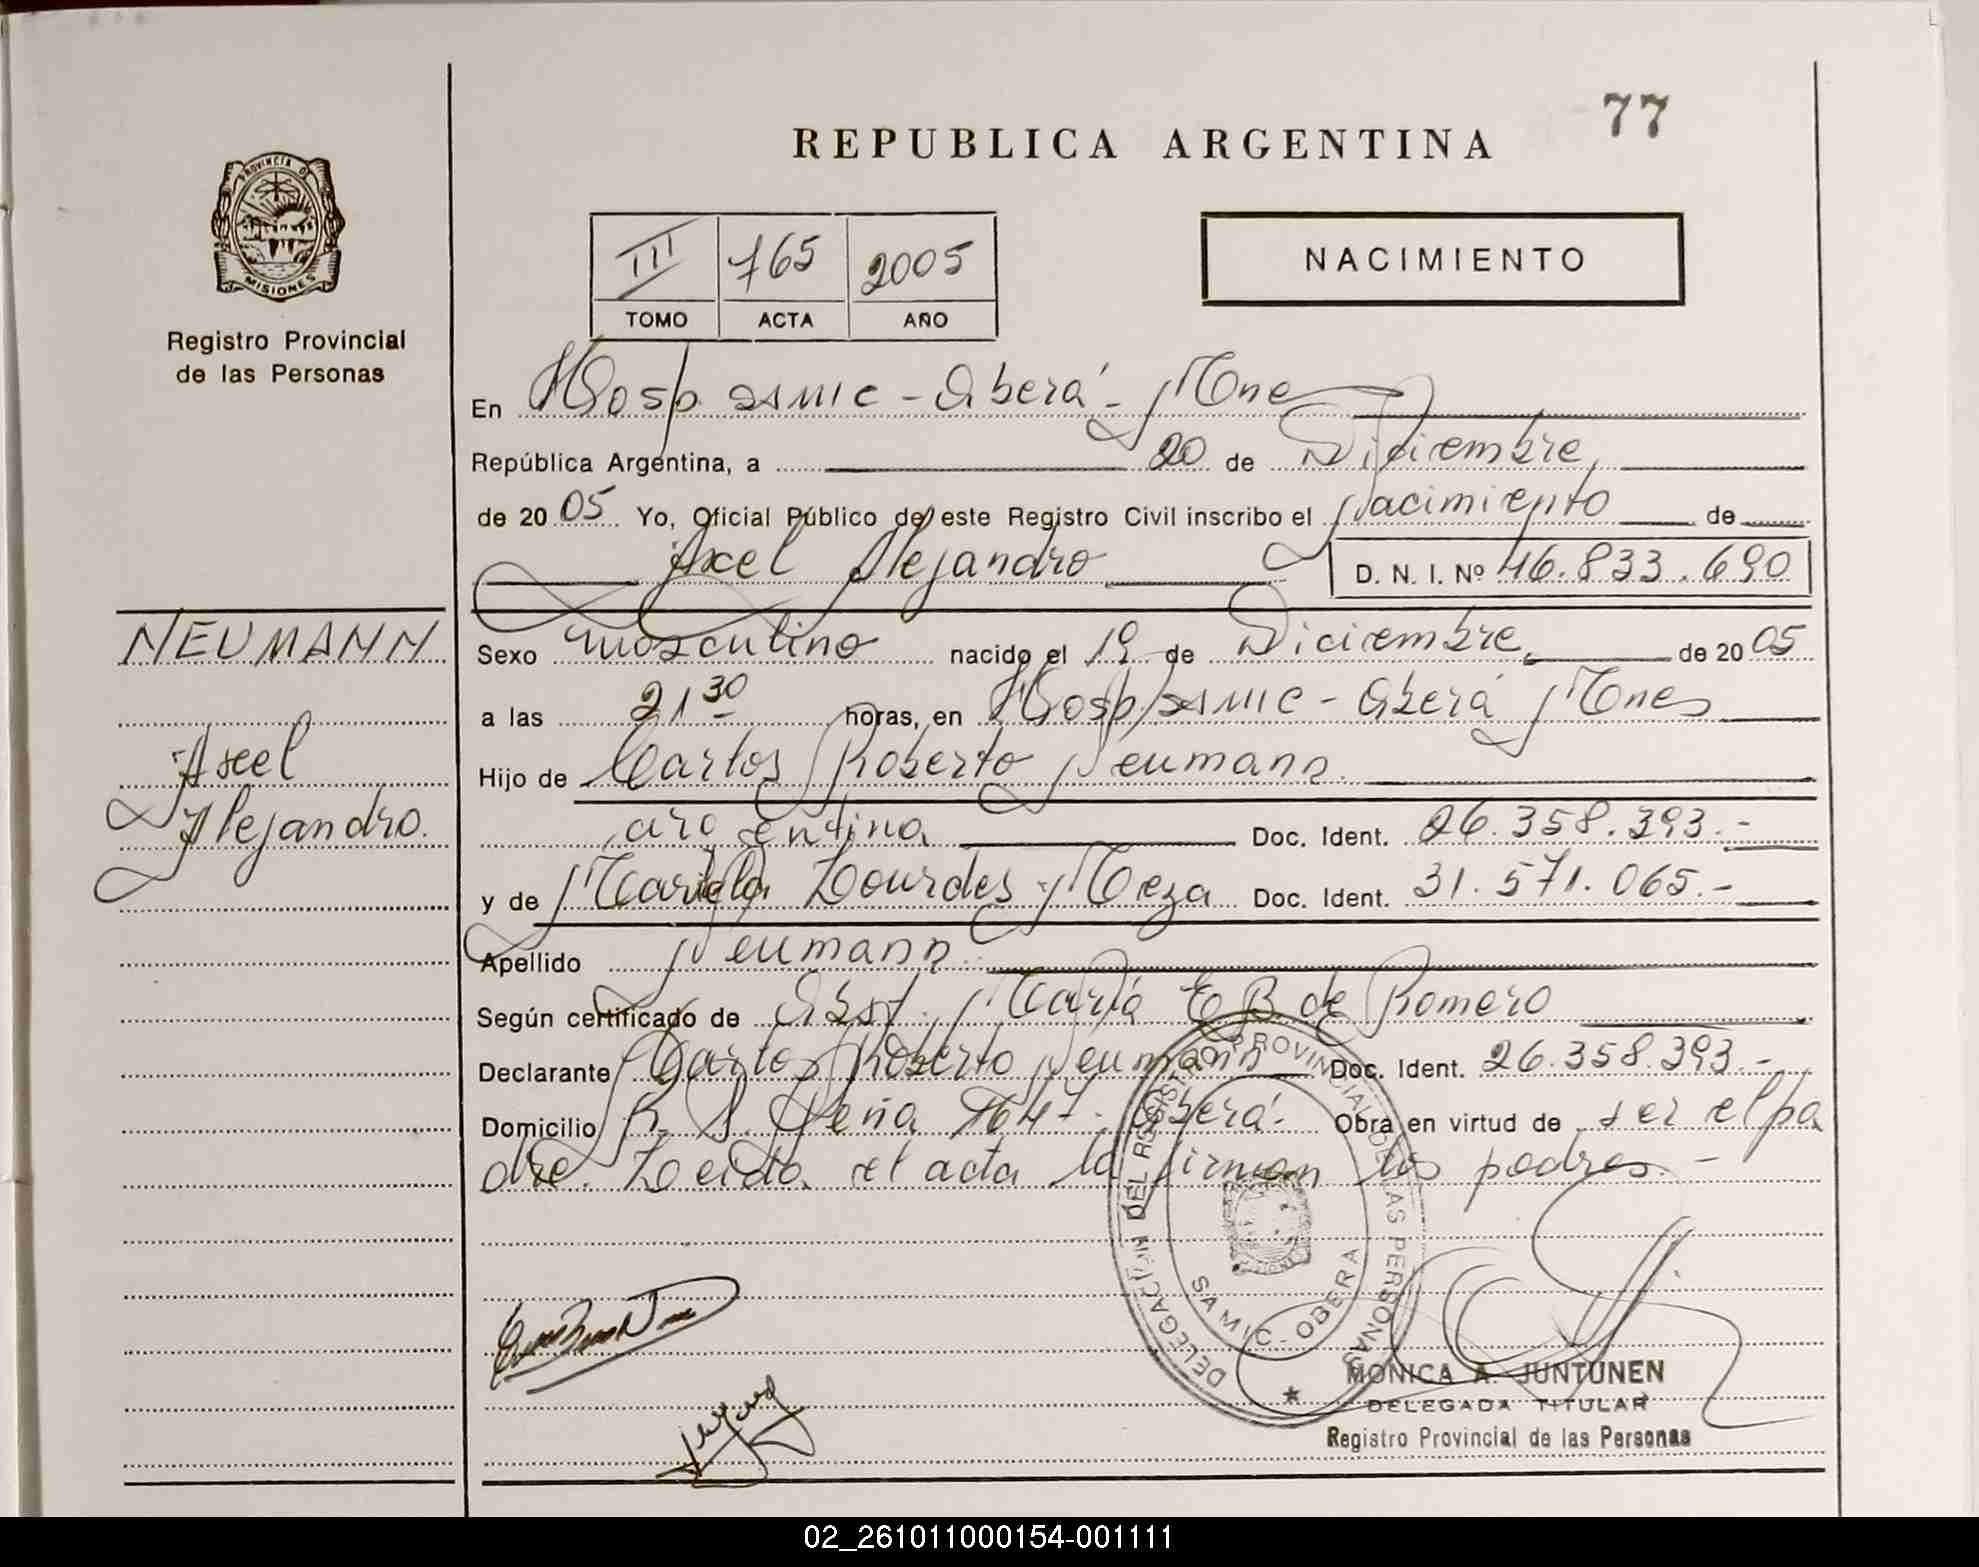 77
REPUBLICA ARGENTINA
PROVINCIA DE MISIONES
Registro Provincial
de las Personas
III 765 2005
TOMO ACTA AÑO
NACIMIENTO
En Hosp SAMIC - Oberá - Mnes
República Argentina, a 20 de Diciembre
de 2005 Yo, Oficial Público de este Registro Civil inscribo el Nacimiento de
Axel Alejandro D. N. I. Nº 46.833.690
NEUMANN
Axel
Alejandro.
Sexo masculino nacido el 19 de Diciembre de 2005
a las 21 30 horas, en Hosp SAMIC - Oberá Mnes
Hijo de Carlos Roberto Neumann.
argentina Doc. Ident. 26.358.393.-
y de Mariela Lourdes Meza Doc. Ident. 31.571.065.-
Apellido Neumann.
Según certificado de Obst. María E B de Romero
Declarante Carlos Roberto Neumann Doc. Ident. 26.358.393.-
Domicilio R. S. Peña 1647. Oberá. Obra en virtud de ser el pa
dre. Leida el acta la firman los padres.-
DELEGACIÓN DEL REGISTRO PROVINCIAL DE LAS PERSONAS
SAMIC - OBERA
MONICA A. JUNTUNEN
DELEGADA TITULAR
Registro Provincial de las Personas
02_261011000154-001111